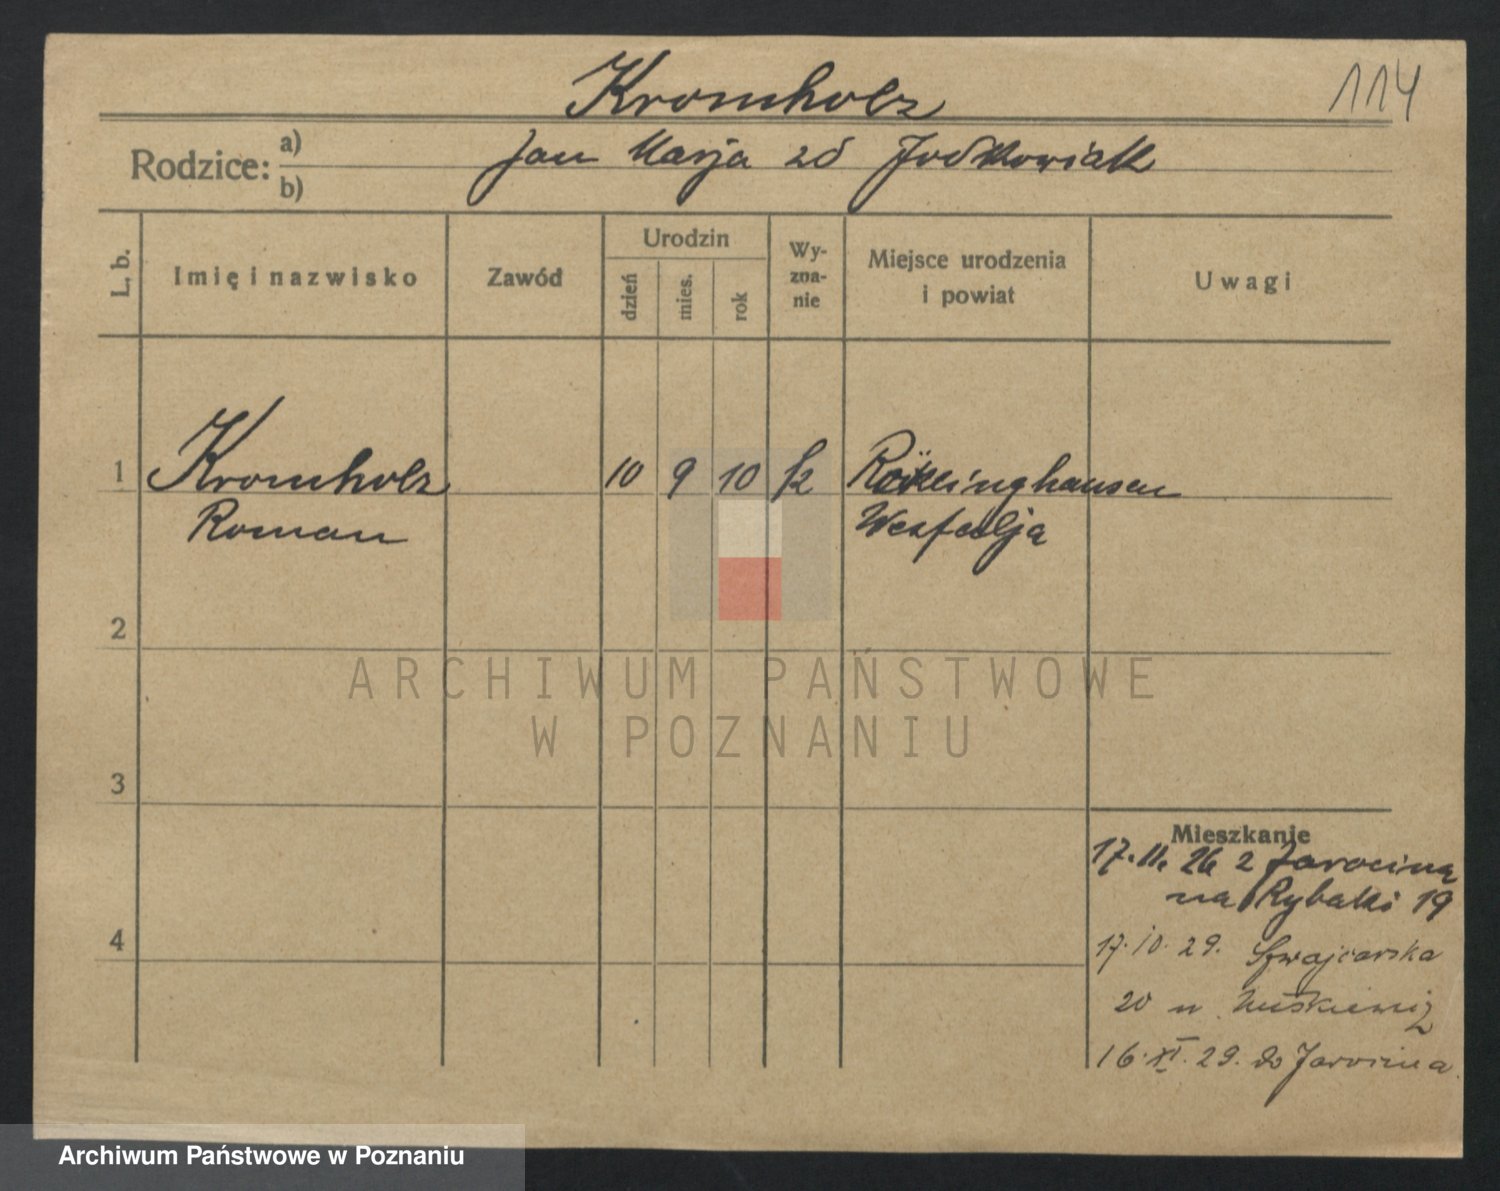 Kromholz
114
Rodzice: a)
b)
Jan Marja zd Jodkowiak
L. b.
Imię i nazwisko
Zawód
Urodzin
dzień
mies.
rok
Wy-
zna-
nie
Miejsce urodzenia
i powiat
Uwagi
1
Kromholz
Roman
10 9 10 rz
Röcklinghausen
Wesfalja
2
3
4
Mieszkanie
17. 11. 26 z Jarocina
na Rybaki 19
17. 10. 29. Szwajcarska
20 u
16. XI. 29. do Jarocina
ARCHIWUM PAŃSTWOWE
W POZNANIU
Archiwum Państwowe w Poznaniu